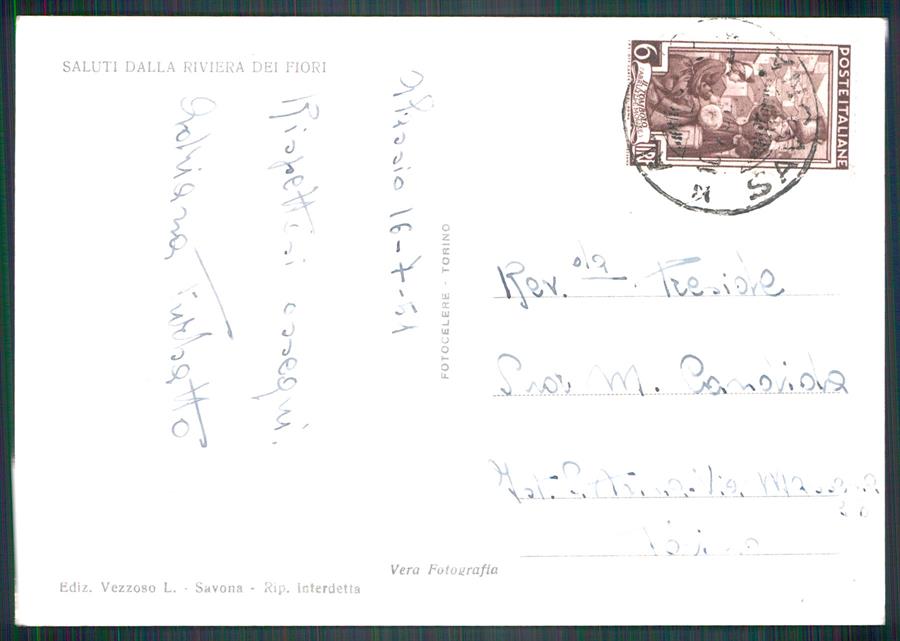 SALUTI DALLA RIVIERA DEI FIORI
Alassio 16-7-51
Rispettosi ossequi.
Giuliana
FOTOCELERE - TORINO
POSTE ITALIANE
6 LIRE
Rev. da Preside
Suor M. Candida
Ist.
Torino
Vera Fotografia
Ediz. Vezzoso L. - Savona - Rip. Interdetta